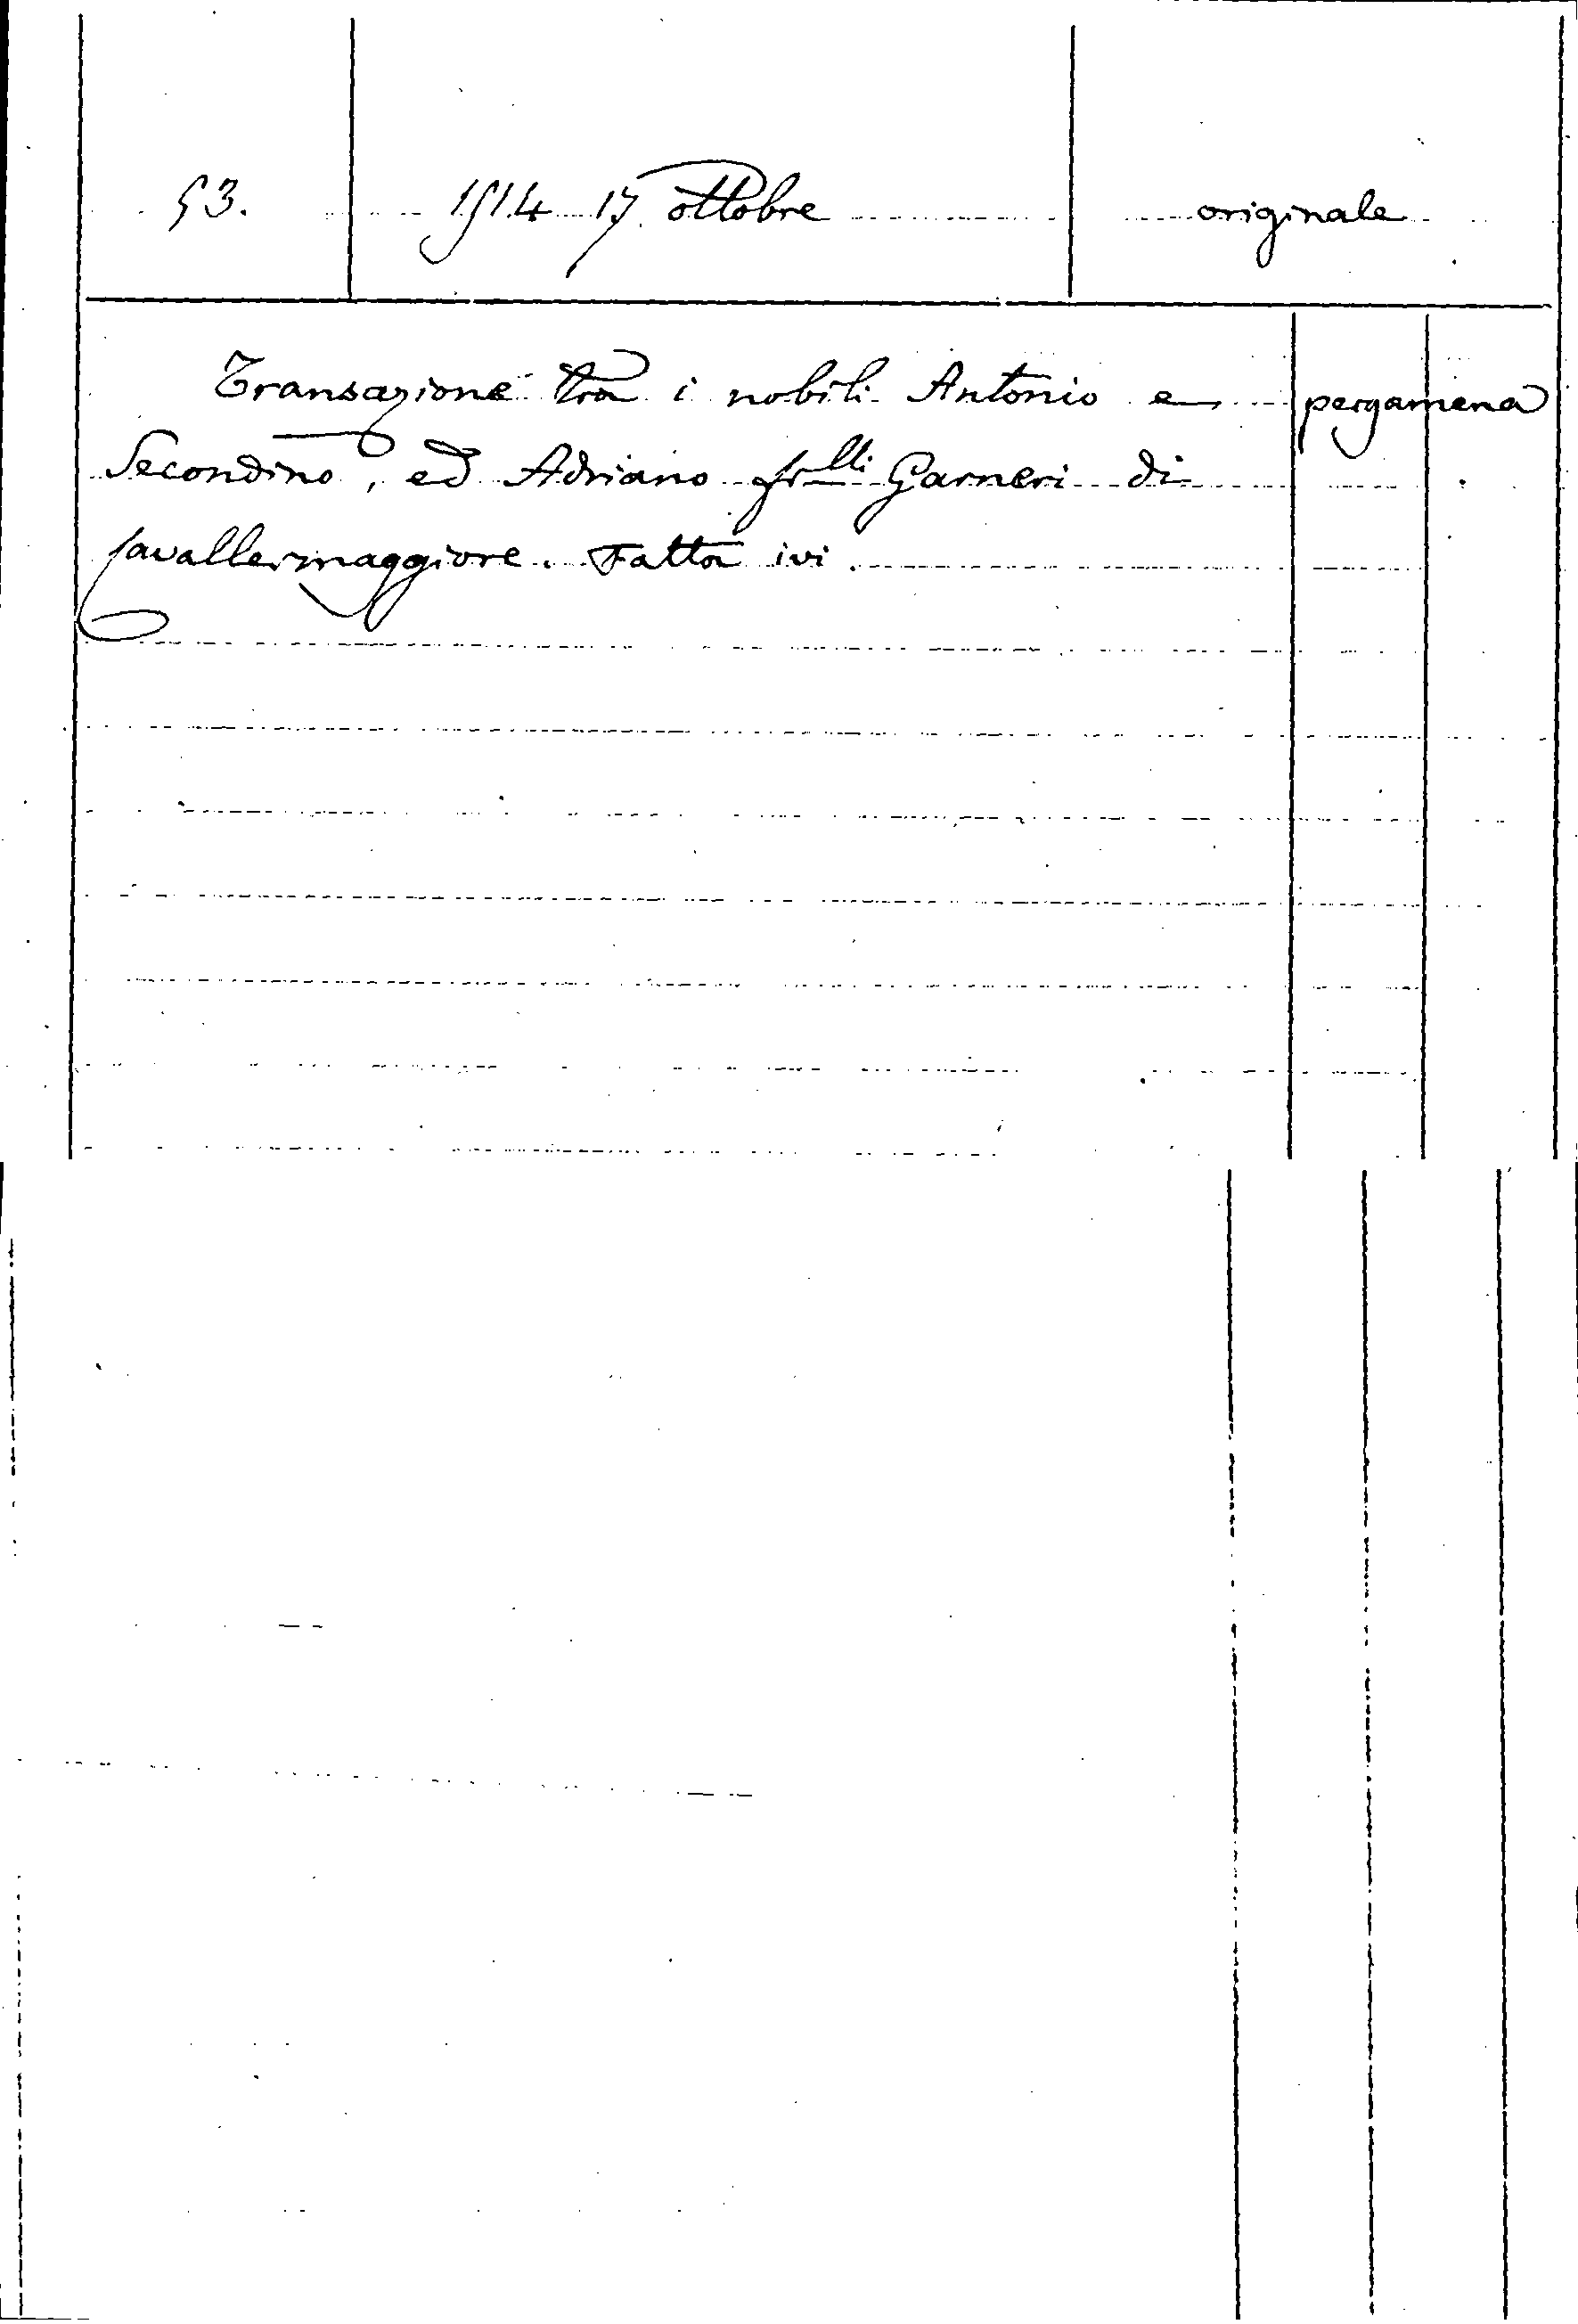 53. 1514 17 ottobre originale
Transazione tra i nobili Antonio e pergamena
Secondino, ed Adriano frlli Garneri di
Cavallermaggiore. Fatta ivi.